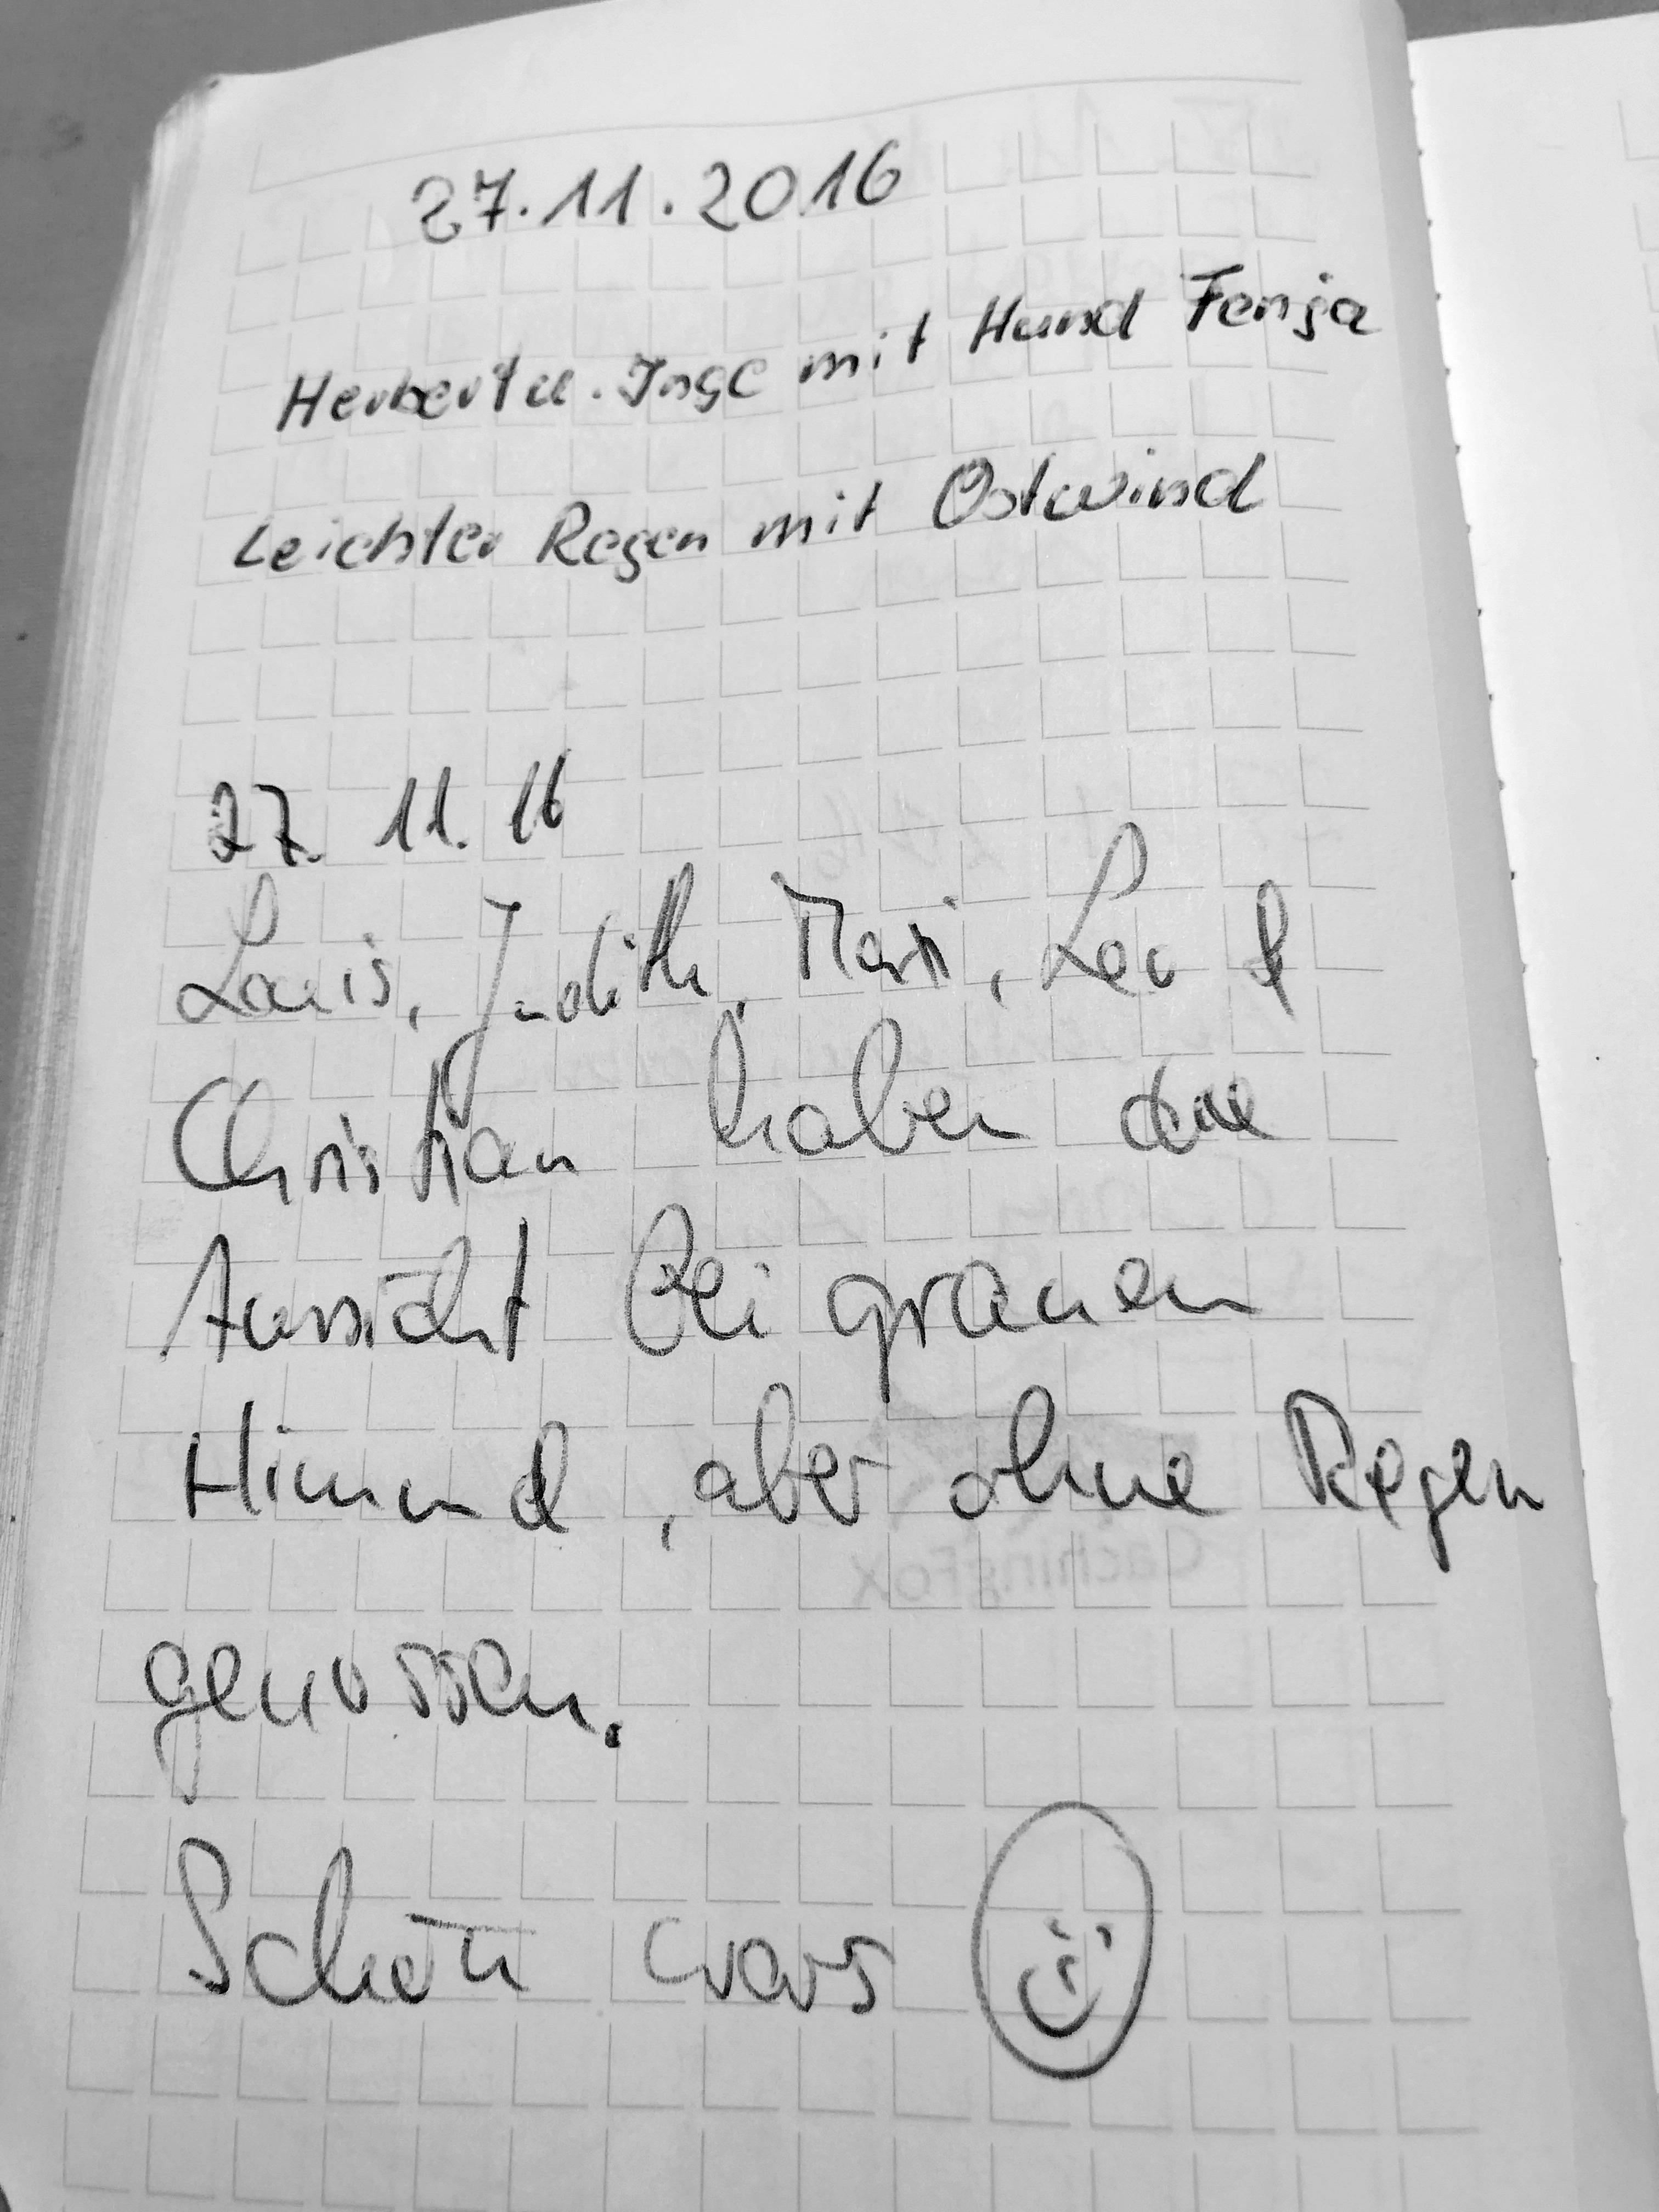 27.11.2016
Herbert u. Inge mit Hund Fenja
Leichter Regen mit Ostwind
27. 11. 16
Louis, Judith, Maxi, Leo &
Christian haben die
Aussicht bei grauem
Himmel, aber ohne Regen
genossen.
Schön wars
CachingFox